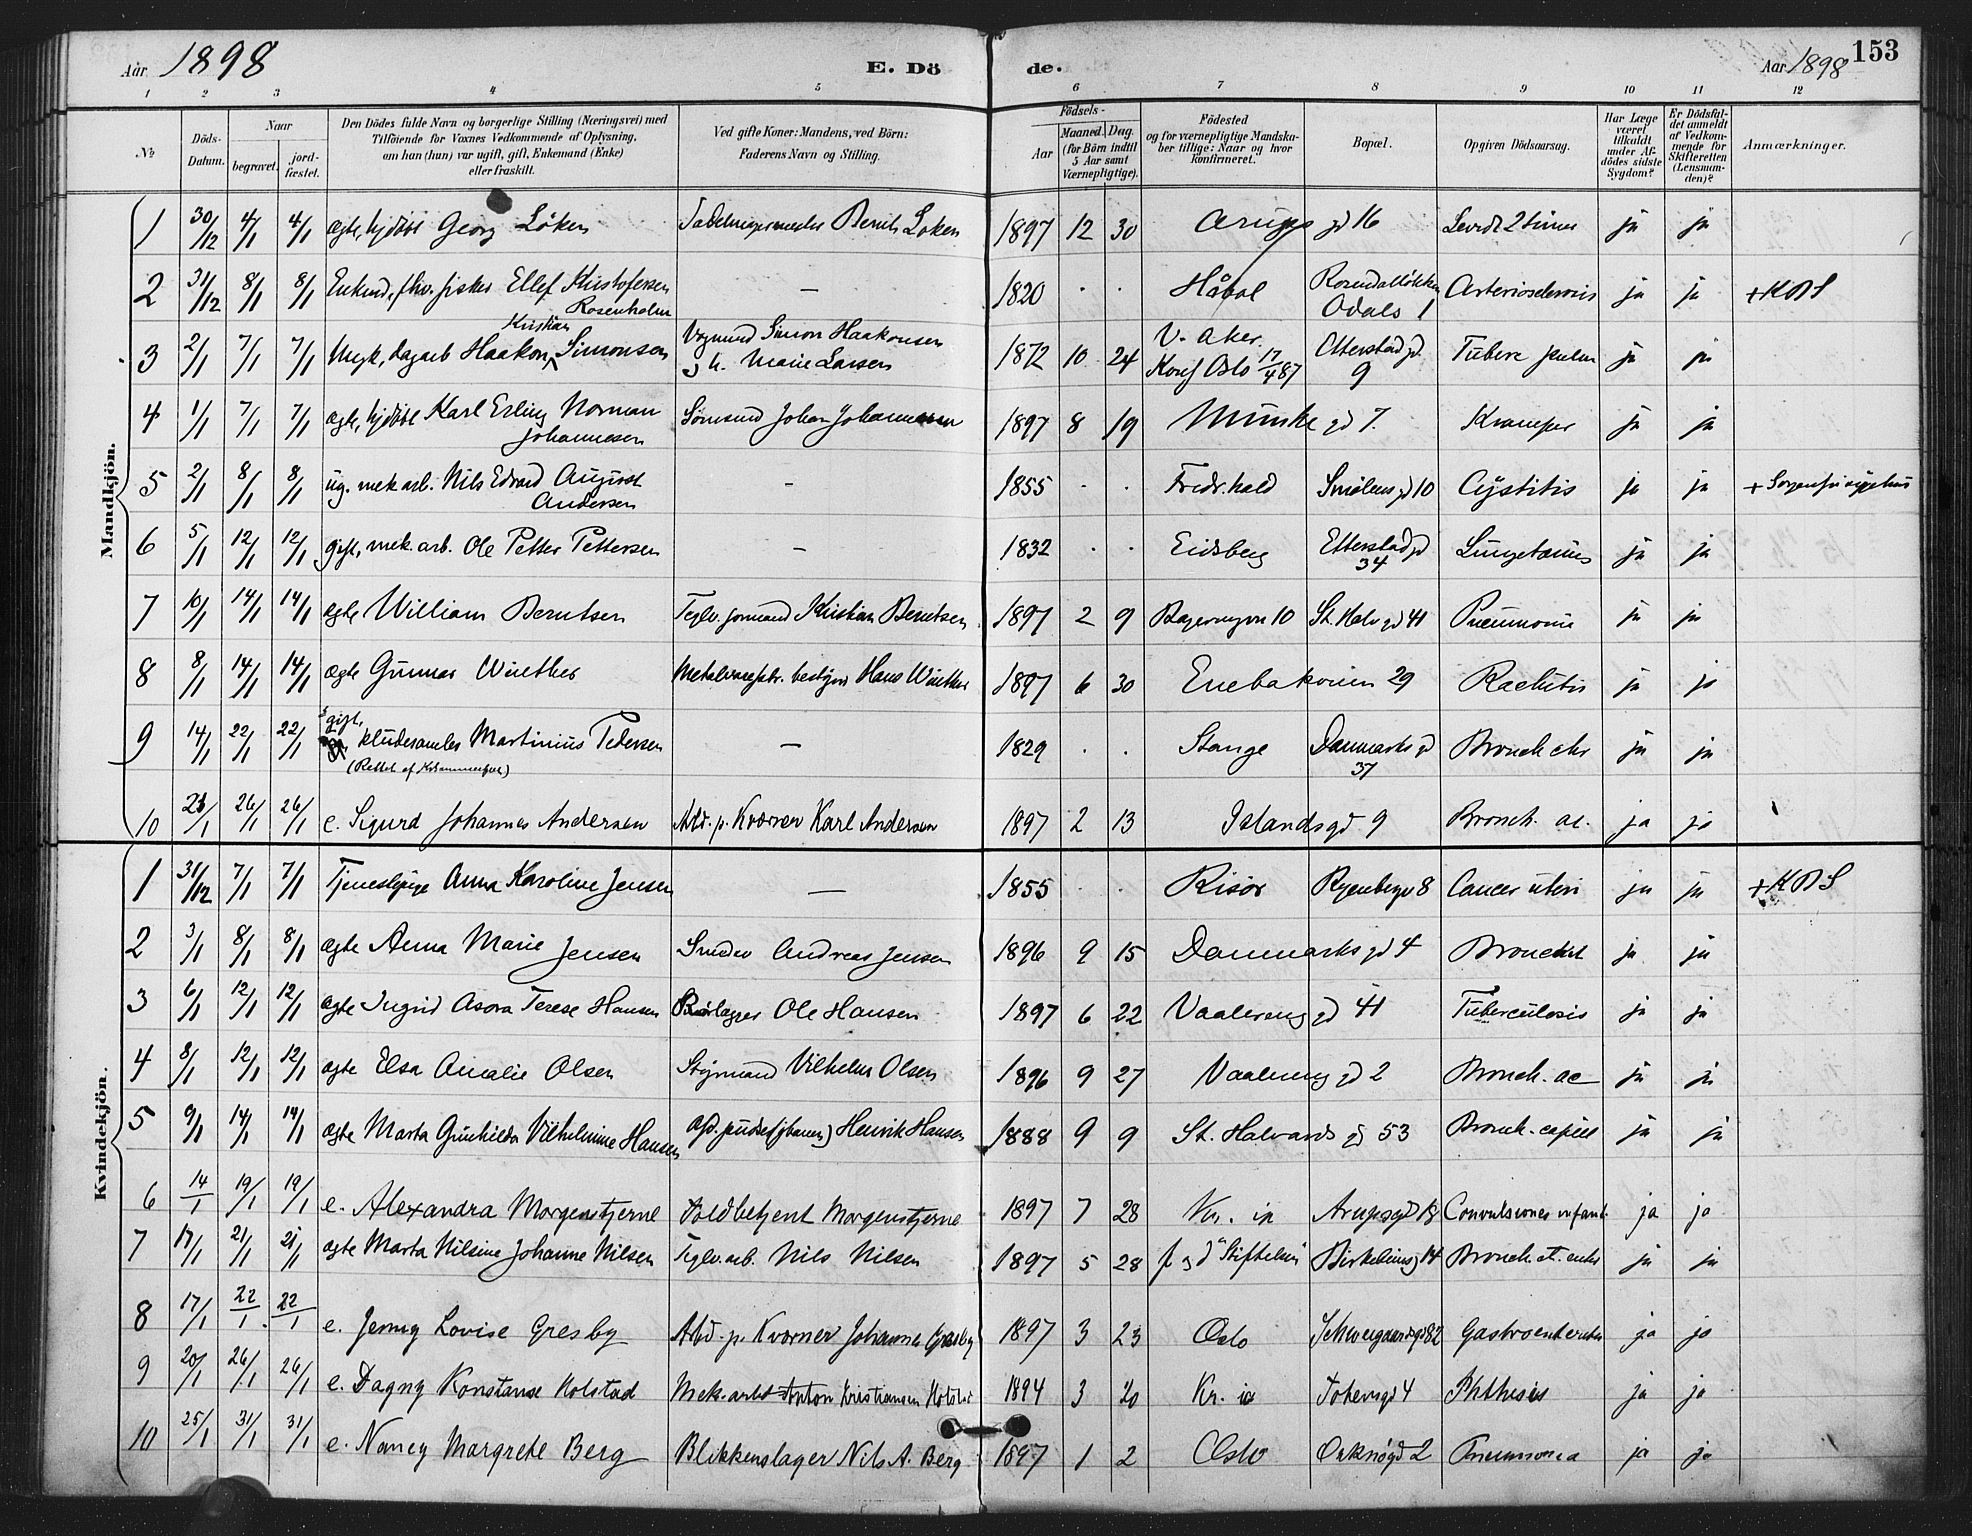 Aar 1898 E. Döde. Aar 1898 153
1 2 3 4 5 6 7 8 9 10 11 12
№
Döds-Datum.
Naar
begravet.
jordfæstet.
Den Dödes fulde Navn og borgerlige Stilling (Næringsvei) med
Tilföiende for Voxnes Vedkommende af Oplysning,
om han (hun) var ugift, gift, Enkemand (Enke)
eller fraskilt.
Ved gifte Koner: Mandens, ved Börn:
Faderens Navn og Stilling.
Födsels-
Aar
Maaned. Dag.
(for Börn indtil
5 Aar samt
Værnepligtige).
Födested
og for værnepligtige Mandskaber tillige: Naar og hvor
Konfirmeret.
Bopæl.
Opgiven Dödsaarsag.
Har Læge
været
tilkaldt
under Afdödes sidste
Sygdom?
Er Dödsfaldet anmeldt
af Vedkommende for
Skifteretten
(Lensmanden)?
Anmærkninger.
Mandkjön.
1 30/12 4/1 4/1 ægte, hjdöbt Georg Löken Sadelmagermester Bernt Löken 1897 12 30 Arups gd 16 Levede 2 timer ja ja
2 31/12 8/1 8/1 Enkmd, fhv. fisker Ellef Kristofersen Rosenholm — 1820 . . Håböl Rosendalløkken Odals 1 Arteriosclerosis ja ja +KBS
3 2/1 7/1 7/1 Ungk, dagarb Haakon Kristian Simonsen Vognmd Simon Haakonsen og h. Marie Larsen 1872 10 24 V. Aker. Konf Oslo 17/4 87 Etterstad gd. 9 Tuberc pulm ja ja
4 1/1 7/1 7/1 ægte, hjdöbt Karl Erling Norman Johannesen Sömand Johan Johannesen 1897 8 19 Munke gd 7. Kramper ja ja
5 2/1 8/1 8/1 ug. mek arb. Nils Edvard August Andersen — 1855 . . Fredr.hald Smålens gd 10 Cystitis ja ja
6 5/1 12/1 12/1 gift, mek. arb. Ole Petter Pettersen — 1832 . . Eidsberg Etterstad gd 34 ja ja
7 10/1 14/1 14/1 ægte William Berntsen Teglv. formand Kristian Berntsen 1897 2 9 10 St. Halv gd 41 Pneumonia ja ja
8 8/1 14/1 14/1 ægte Gunnar Winther Metalvarefabr. bestyrer Hans Winther 1897 6 30 Enebakveien 29 Rachitis ja ja
9 14/1 22/1 22/1 gift, kludesamler Martinius Pedersen — 1829 . . Stange Danmarks gd 37 Bronch chr ja ja
10 23/1 26/1 26/1 e. Sigurd Johannes Andersen Arbd. p. Kværner Karl Andersen 1897 2 13 Islands gd 9 Bronch. ac. ja ja
Kvindekjön.
1 31/12 7/1 7/1 Tjenestpige Anna Karoline Jensen — 1855 . . Risör Ryenbergv 8 Cancer uteri ja ja +KBS
2 3/1 8/1 8/1 ægte Anna Marie Jensen Smed Andreas Jensen 1896 9 15 Danmarks gd 4 Bronchit ja ja
3 6/1 12/1 12/1 ægte Ingrid Asora Terese Hansen Ole Hansen 1897 6 22 Vaalereng gd 41 Tuberculosis ja ja
4 8/1 12/1 12/1 ægte Elsa Amalie Olsen Styrmand Vilhelm Olsen 1896 9 27 Vaalereng gd 2 Bronch. ac ja ja
5 9/1 14/1 14/1 ægte Marta Gunhilda Vilhelmine Hansen Henrik Hansen 1888 9 9 St. Halvards gd 53 Bronch. capill ja ja
6 14/1 19/1 19/1 e. Alexandra Morgenstjerne Toldbetjent Morgenstjerne 1897 7 28 Kr. ia Arupsgd 18 Convulsiones infant. ja ja
7 17/1 21/1 21/1 ægte Marta Nilsine Johanne Nilsen Teglv. arb. Nils Nilsen 1897 5 28 f. "Stiftelsen" Birkebeinerg 14 Bronch. et. enter ja ja
8 17/1 22/1 22/1 e. Jenny Lovise Gresby Arbd. p. Kværner Johannes Gresby 1897 3 23 Oslo Schweigaardsgd 82 Gastroenterites ja ja
9 20/1 26/1 26/1 e. Dagny Konstanse Holstad Mek. arbd Anton Kristiansen Holstad 1894 3 20 Kr. ia Tokersgd 4 Phthisis ja ja
10 25/1 31/1 31/1 e. Nancy Margrete Berg Blikkenslager Nils A. Berg 1897 1 2 Oslo Orknögd 2 Pneumonia ja ja